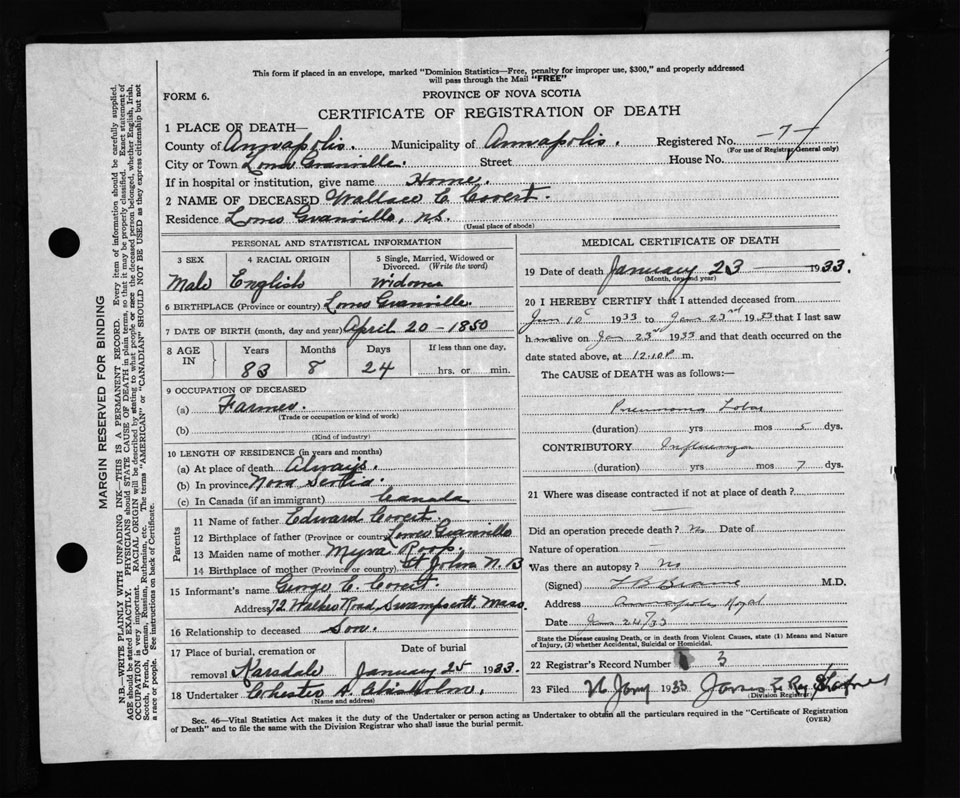 This form if placed in an envelope, marked "Dominion Statistics—Free, penalty for improper use, $300," and properly addressed
will pass through the Mail "FREE"
FORM 6.
PROVINCE OF NOVA SCOTIA
CERTIFICATE OF REGISTRATION OF DEATH
1 PLACE OF DEATH—
County of Annapolis. Municipality of Annapolis. Registered No. —7—
(For use of Registrar General only)
City or Town Lower Granville. Street House No.
If in hospital or institution, give name Home.
2 NAME OF DECEASED Wallace C. Covert.
Residence Lower Granville, N.S.
(Usual place of abode)
PERSONAL AND STATISTICAL INFORMATION
3 SEX 4 RACIAL ORIGIN 5 Single, Married, Widowed or Divorced. (Write the word)
Male English Widower
6 BIRTHPLACE (Province or country) Lower Granville
7 DATE OF BIRTH (month, day and year) April 20-1850
8 AGE IN Years Months Days If less than one day,
83 8 24 hrs. or min.
9 OCCUPATION OF DECEASED
(a) Farmer
(Trade or occupation or kind of work)
(b)
(Kind of industry)
10 LENGTH OF RESIDENCE (in years and months)
(a) At place of death Always.
(b) In province Nova Scotia.
(c) In Canada (if an immigrant) Canada
Parents
11 Name of father Edward Covert.
12 Birthplace of father (Province or country) Lower Granville
13 Maiden name of mother Myra Roop.
14 Birthplace of mother (Province or country) St John N.B
15 Informant's name George E. Covert.
Address 72 Walker Road, Swampscott, Mass
16 Relationship to deceased Son.
17 Place of burial, cremation or removal Date of burial
Karsdale January 25 1933
18 Undertaker Chester A. Chisholm,
(Name and address)
MEDICAL CERTIFICATE OF DEATH
19 Date of death January 23 — 1933.
(Month, day and year)
20 I HEREBY CERTIFY that I attended deceased from
Jan 10 1933 to Jan 23rd 1933 that I last saw
him alive on Jan 23rd 1933 and that death occurred on the
date stated above, at 12.10 P m.
The CAUSE of DEATH was as follows:—
Pneumonia Lobar
(duration) yrs mos 5 dys.
CONTRIBUTORY Influenza
(duration) yrs mos 7 dys.
21 Where was disease contracted if not at place of death?
—
Did an operation precede death? No Date of
Nature of operation —
Was there an autopsy? No
(Signed) M.D.
Address Annapolis Royal
Date Jan 24/33
State the Disease causing Death, or in death from Violent Causes, state (1) Means and Nature
of Injury, (2) whether Accidental, Suicidal or Homicidal.
22 Registrar's Record Number 3
23 Filed 26 Jany 1933
Division Registrar
Sec. 46—Vital Statistics Act makes it the duty of the Undertaker or person acting as Undertaker to obtain all the particulars required in the "Certificate of Registration
of Death" and to file the same with the Division Registrar who shall issue the burial permit.
(OVER)
MARGIN RESERVED FOR BINDING
N.B.—WRITE PLAINLY WITH UNFADING INK—THIS IS A PERMANENT RECORD. Every item of information should be carefully supplied.
AGE should be stated EXACTLY. PHYSICIANS should STATE CAUSE OF DEATH in plain terms, so that it may be properly classified. Exact statement of
OCCUPATION is very important. RACIAL ORIGIN will be described by stating to what people or race the deceased person belonged, whether English, Irish,
Scotch, French, German, Russian, Ruthenian, etc. The terms "AMERICAN" or "CANADIAN" SHOULD NOT BE USED as they express citizenship but not
a race or people. See instructions on back of Certificate.